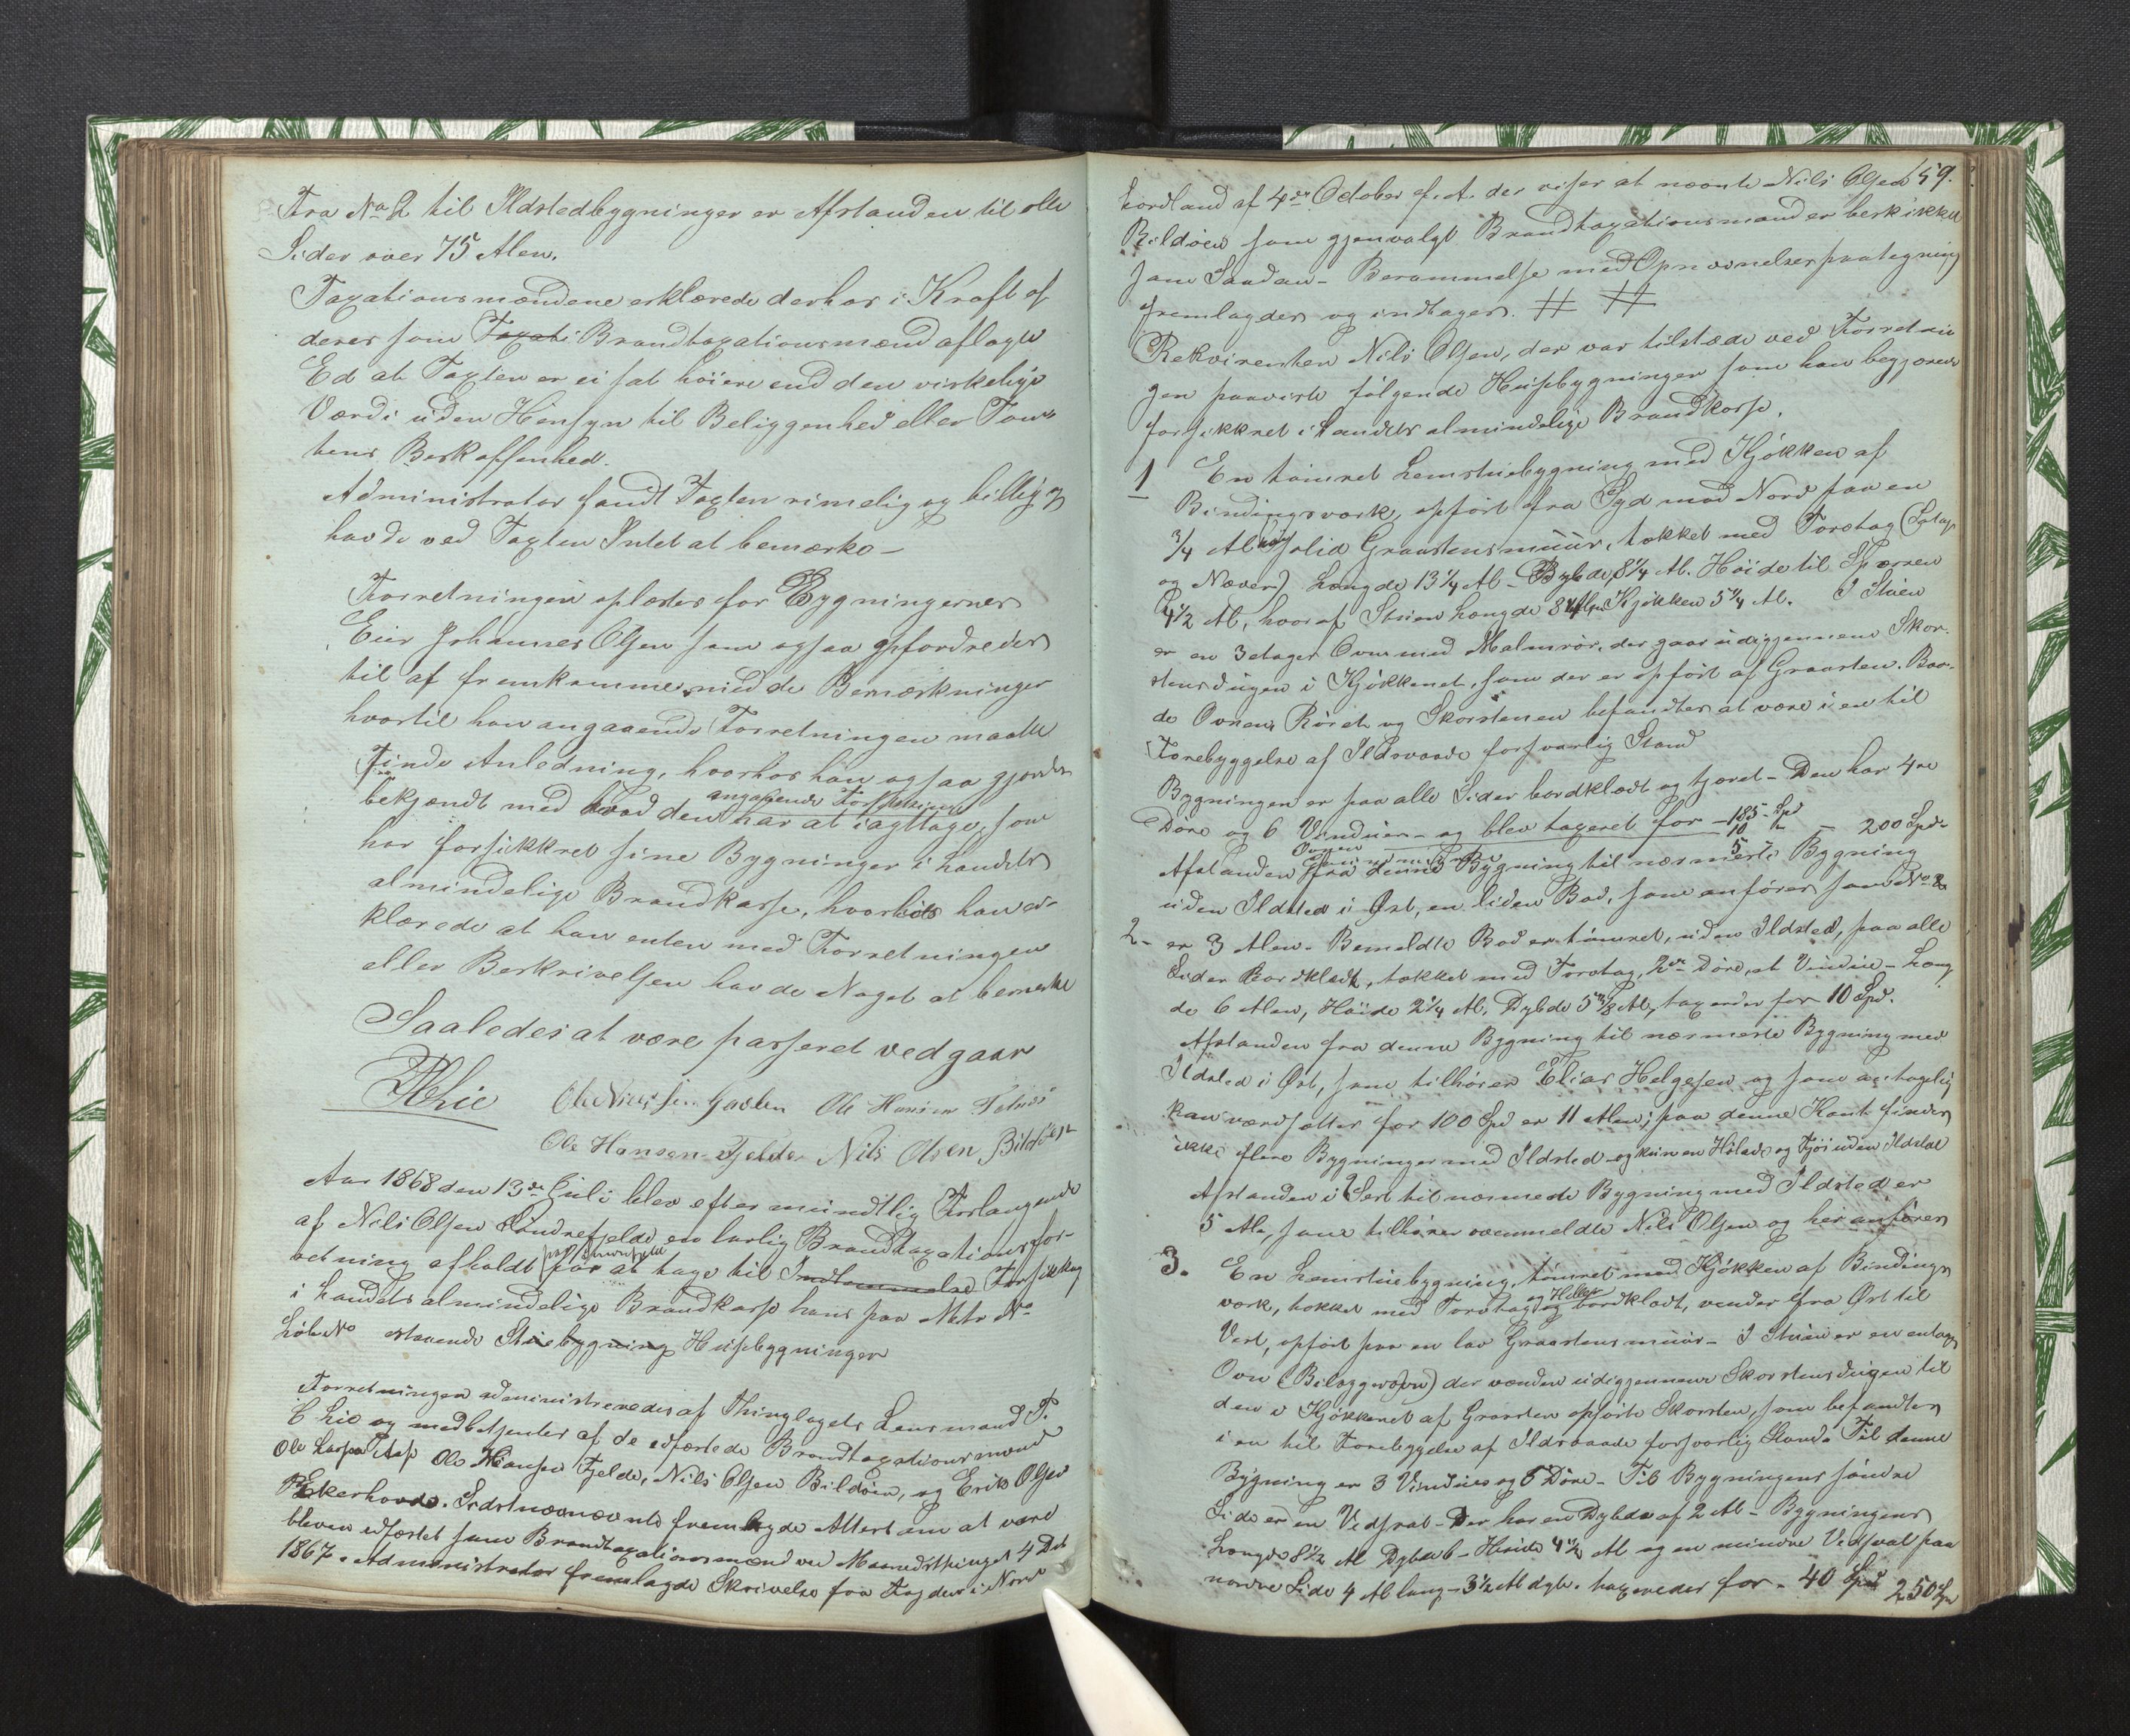 Fra No 2 til Ildstedbygninger er Afstanden til alle
Sider over 75 Alen.
Taxationsmændene erklærede derhos i Kraft af
deres som Taxati Brandtaxationsmænd aflagte
Ed at Taxten er ei sat høiere end den virkelige
Værdi uden Hensyn til Beliggenhed eller Tom-
tens Beskaffenhed.
Administrator fandt Taxten rimelig og billig og
havde ved Taxten Intet at bemærke –
Forretningen oplæstes for Bygningernes
Eier Johannes Olsen som ogsaa opfordredes
til at fremkomme med de Bemærkninger
hvortil han angaaende Forretningen maatte
finde Anledning, hvorhos han ogsaa gjordes
bekjendt med hvad den angaaende Forsikring har at iagttage, som
har forsikkret sine Bygninger i Landets
almindelige Brandkasse, hvortil han er-
klærede at han enten med Forretningen
eller Beskrivelsen havde Noget at bemærke
Saaledes at være passeret vedgaar
THLie Ole Nielsen Ole Hansen
Ole Hansen Fjelde Nils Olsen Bildøen
Aar 1868 den 13de Juli blev efter mundtlig Forlangende
af Nils Olsen Søndrefjelde en lovlig Brandtaxationsfor-
retning afholdt for at tage til Indlemmelse Forsikkring
i Landets almindelige Brandkasse hans paa Matr No
Løbe No staaende Stuebygning Husebygninger
Forretningen administreredes af Thinglagets Lensmand T.
H Lie og medbetjentes af de edfæstede Brandtaxationsmænd
Ole Hansen Fjelde, Nils Olsen Bildøen, og Erik Olsen
Ekerhovde. Sidstnævnte fremlagde Attest om at være
bleven edfæstet som Brandtaxationsmand ved Maanedsthinget 4 Det
1867. Administrator fremlagde Skrivelse fra Fogden i Nord
159.
hordland af 4de October f. A. der viser at nævnte Nils Olsen
Bildøen som gjenvalgt Brandtaxationsmand er beskikket
som Saadan – Berammelse med Opnævnelsespaategning
fremlagdes og indtages. # #
Rekvirenten Nils Olsen, der var tilstæde ved Forretnin
gen paaviste følgende Husebygninger som han begjærede
forsikkret i Landets almindelige Brandkasse.
1 En tømret Lemstuebygning med Kjøkken af
Bindingsværk, opført fra Syd mod Nord paa en
3/4 Al høi solid Graastensmuur, tækket med Torvtag
og Næver). Længde 13 1/4 Al – Bybde, 8 1/4 Al. Høide til Sparren
4 1/2 Al, hvoraf Stuen Længde 8 Alen Kjøkken 5 1/4 Al. I Stuen
er en 3 etages Ovn med Malmrør, der gaar udigjennem Skor-
stensdugen i Kjøkkenet, som der er opført af Graasten. Baa-
de Ovnen Røret og Skorstenen befandtes at være i en til
Forebyggelse af Ildsvaade forsvarlig Stand
Bygningen er paa alle Sider bordklædt og tjæret – Den har 4re
Døre og 6 Vinduer – og blev taxeret for – 185 Spd
Ovnen 10 " – 200 Spd
5
Afstanden fra denne Bygning til nærmeste Bygning
uden Ildsted i Øst, en liden Bod, som anføres som No 2
2- er 3 Alen. Bemeldte Bod er tømret, uden Ildsted, paa alle
Sider Bordklædt, tækket med Torvtag, 2de Døre, et Vindue – Læng
de 6 Alen, Høide 2 1/4 Al, Dybde 5 3/8 Al, taxerdes for 10 Spd.
Afstanden fra denne Bygning til nærmeste Bygning med
Ildsted i Øst, som tilhører Elias Helgesen og som antagelig
kan værdsættes for 100 Spd er 11 Alen; paa denne Kant findes
ikke flere Bygninger med Ildsted og kun en Hølade og Fjøs uden Ildsted
Afstanden i Vest til nærmeste Bygning med Ildsted er
5 Al, som tilhører ovenmeldte Nils Olsen og her anføres
3. En Lemstuebygning, tømret med Kjøkken af Bindings
værk, tækket med Torvtag og Heller og bordklædt, vender fra Øst til
Vest, opført paa en lav Graastensmuur – I Stuen er en entages
Ovn (Bilæggerovn) der vender udigjennem Skorstensdugen til
den i Kjøkkenet af Graasten opførte Skorsten, som befandtes
i en til Forebyggelse af Ildsvaade forsvarlig Stand. Til denne
Bygning er 3 Vinduer og 5 Døre – Til Bygningens søndre
Side er en Vedsval – Der har en Dybde af 2 Al – Bygningens
Længde 8 1/2 Al Dybde 6 – Høide 4 1/2 Al og en mindre Vedsval paa
nordre Side 4 Al lang – 3 1/2 Al dyb. taxeredes for – 40 Spd 250 Spd